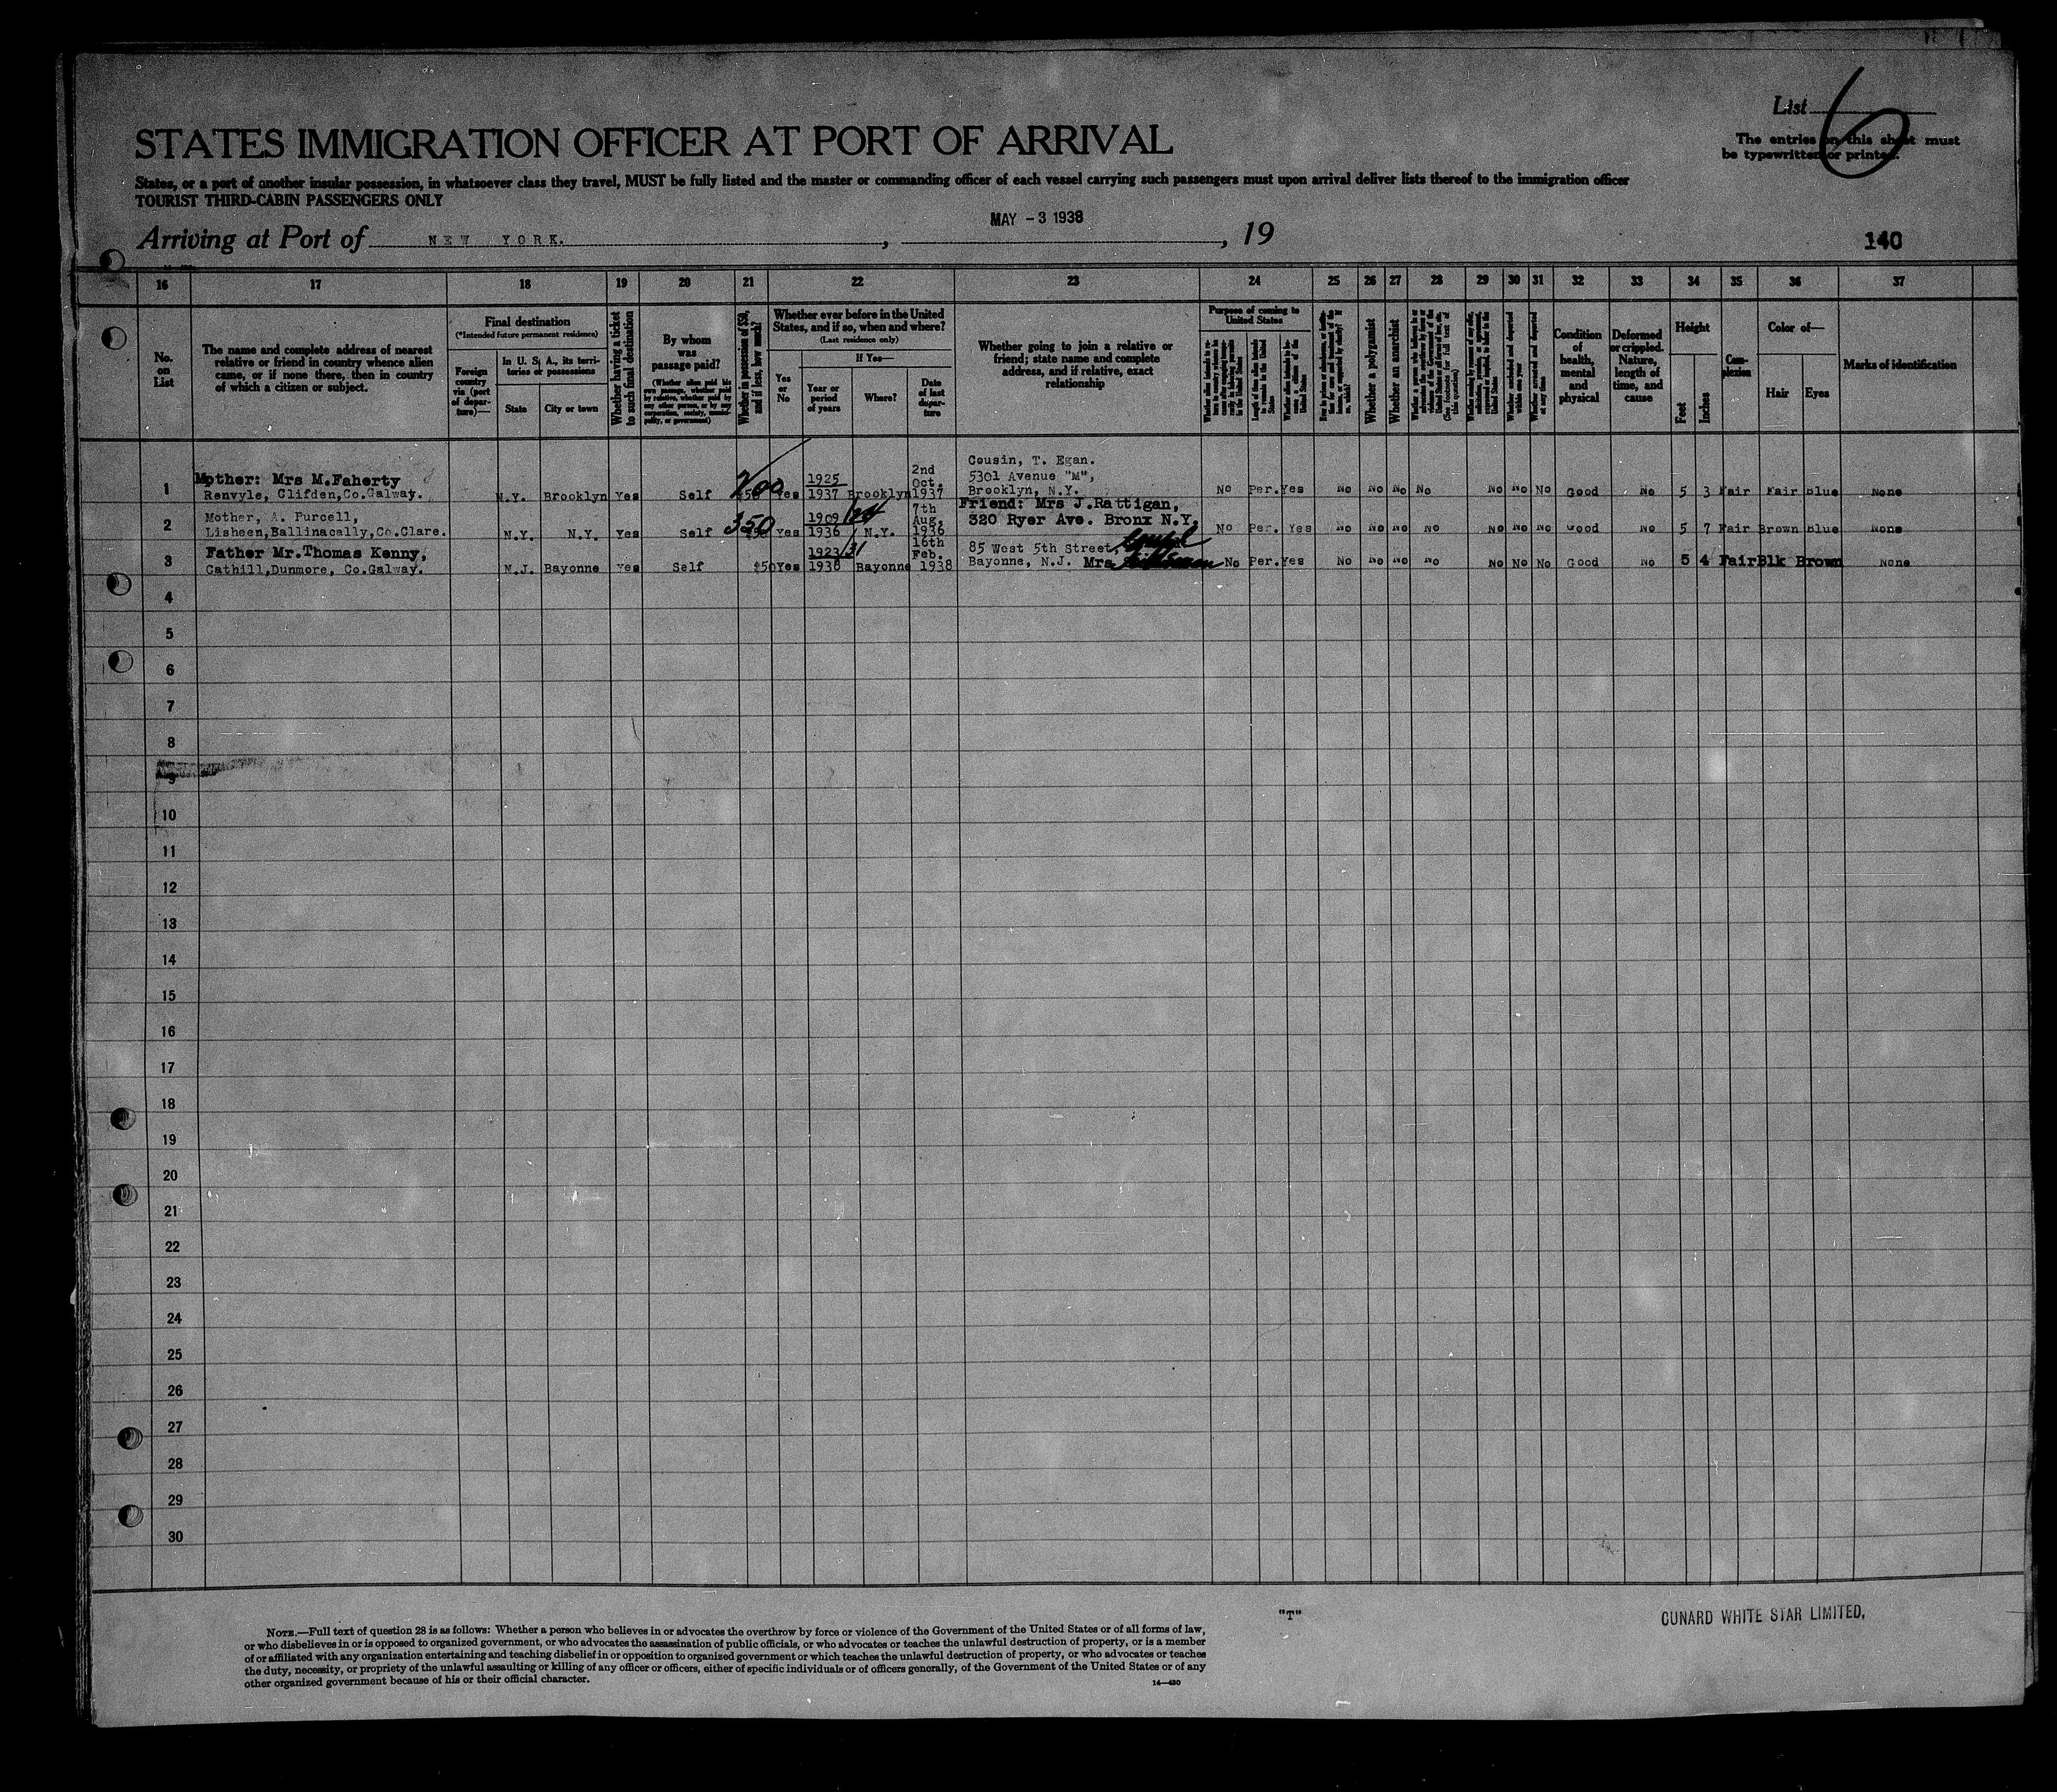 List 6
STATES IMMIGRATION OFFICER AT PORT OF ARRIVAL
The entries on this sheet must
be typewritten or printed.
States, or a port of another insular possession, in whatsoever class they travel, MUST be fully listed and the master or commanding officer of each vessel carrying such passengers must upon arrival deliver lists thereof to the immigration officer
TOURIST THIRD-CABIN PASSENGERS ONLY
MAY - 3 1938
Arriving at Port of NEW YORK. , , 19
140
16 17 18 19 20 21 22 23 24 25 26 27 28 29 30 31 32 33 34 35 36 37
No.
on
List
The name and complete address of nearest
relative or friend in country whence alien
came, or if none there, then in country
of which a citizen or subject.
Final destination
(*Intended future permanent residence)
Foreign
country
via (port
of depar-
ture)—
In U. S. A., its terri-
tories or possessions
State
City or town
Whether having a ticket
to such final destination
By whom
was
passage paid?
Whether in possession of $50,
and if less, how much?
Whether ever before in the United
States, and if so, when and where?
(Last residence only)
Yes
or
No
If Yes—
Year or
period
of years
Where?
Date
of last
depar-
ture
Whether going to join a relative or
friend; state name and complete
address, and if relative, exact
relationship
Purpose of coming to
United States
Whether a polygamist
Whether an anarchist
Condition
of
health,
mental
and
physical
Deformed
or crippled.
Nature,
length of
time, and
cause
Height
Feet
Inches
Com-
plexion
Color of—
Hair
Eyes
Marks of identification
1 Mother: Mrs M.Faherty
Renvyle, Clifden,Co.Galway. N.Y. Brooklyn Yes Self Yes 1925 1937 Brooklyn 2nd Oct. 1937
Cousin, T. Egan.
5301 Avenue "M",
Brooklyn, N.Y. No Per. Yes No No No No No No No Good No 5 3 Fair Fair blue None
2 Mother, A. Purcell,
Lisheen,Ballinacally,Co.Clare. N.Y. N.Y. Yes Self 350 Yes 1909/24 1936 N.Y. 7th Aug, 1936
Friend: Mrs J.Rattigan,
320 Ryer Ave. Bronx N.Y. No Per. Yes No No No No No No No Good No 5 7 Fair Brown blue None
3 Father Mr.Thomas Kenny,
Cathill,Dunmore, Co.Galway. N.J. Bayonne Yes Self $50 Yes 1923/31 1938 Bayonne 16th Feb. 1938
85 West 5th Street,
Bayonne, N.J. Mrs No Per. Yes No No No No No No No Good No 5 4 Fair Blk Brown None
4
5
6
7
8
9
10
11
12
13
14
15
16
17
18
19
20
21
22
23
24
25
26
27
28
29
30
"T"
CUNARD WHITE STAR LIMITED.
NOTE.—Full text of question 28 is as follows: Whether a person who believes in or advocates the overthrow by force or violence of the Government of the United States or of all forms of law,
or who disbelieves in or is opposed to organized government, or who advocates the assassination of public officials, or who advocates or teaches the unlawful destruction of property, or is a member
of or affiliated with any organization entertaining and teaching disbelief in or opposition to organized government or which teaches the unlawful destruction of property, or who advocates or teaches
the duty, necessity, or propriety of the unlawful assaulting or killing of any officer or officers, either of specific individuals or of officers generally, of the Government of the United States or of any
other organized government because of his or their official character.
14—430